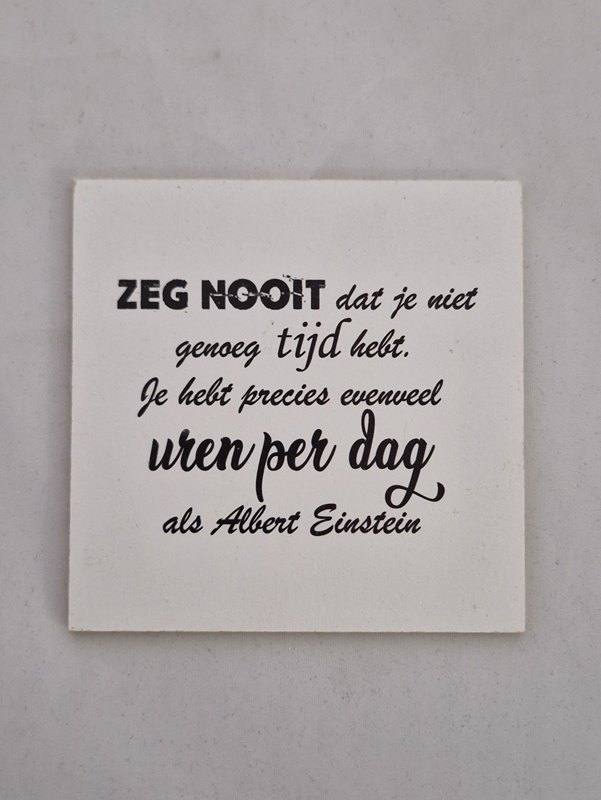 ZEG NOOIT dat je niet
genoeg tijd hebt.
Je hebt precies evenveel
uren per dag
als Albert Einstein